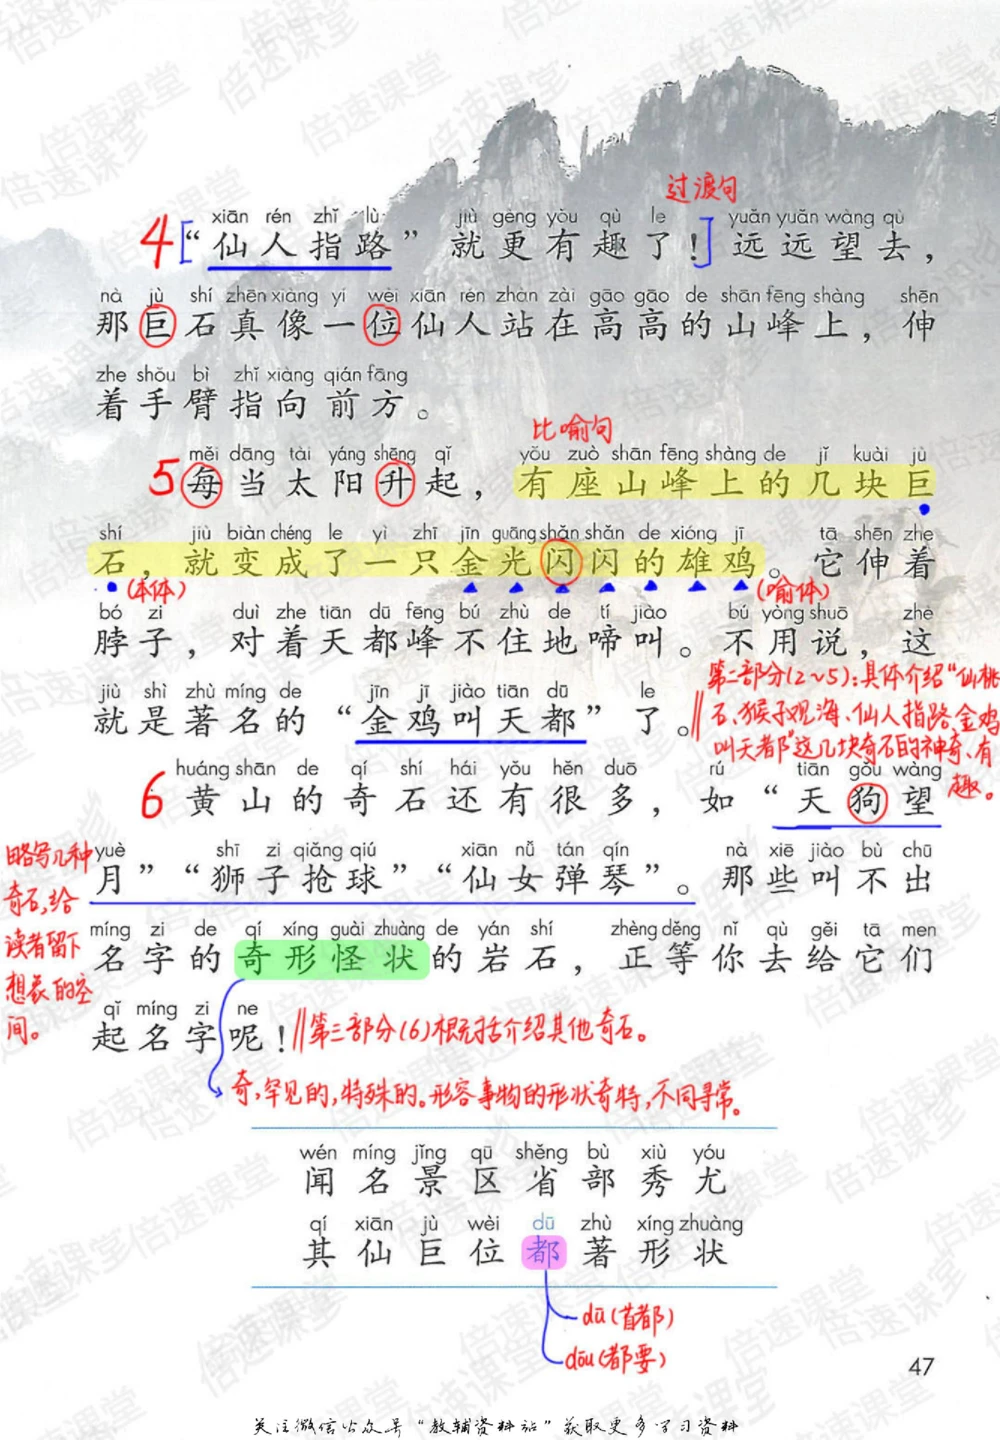 过渡句
xiān rén zhǐ lù jiù gèng yǒu qù le yuǎn yuǎn wàng qù
4 “仙人指路”就更有趣了！远远望去，
nà jù shí zhēn xiàng yí wèi xiān rén zhàn zài gāo gāo de shān fēng shàng shēn
那巨石真像一位仙人站在高高的山峰上，伸
zhe shǒu bì zhǐ xiàng qián fāng
着手臂指向前方。
比喻句
měi dāng tài yáng shēng qǐ yǒu zuò shān fēng shàng de jǐ kuài jù
5 每当太阳升起，有座山峰上的几块巨
shí jiù biàn chéng le yì zhī jīn guāng shǎn shǎn de xióng jī tā shēn zhe
石，就变成了一只金光闪闪的雄鸡。它伸着
(本体) (喻体)
bó zi duì zhe tiān dū fēng bú zhù de tí jiào bú yòng shuō zhè
脖子，对着天都峰不住地啼叫。不用说，这
jiù shì zhù míng de jīn jī jiào tiān dū le
就是著名的“金鸡叫天都”了。
第二部分(2~5):具体介绍“仙桃
石、猴子观海、仙人指路、金鸡
叫天都”这几块奇石的神奇、有
趣。
huáng shān de qí shí hái yǒu hěn duō rú tiān gǒu wàng
6 黄山的奇石还有很多，如“天狗望
yuè shī zi qiǎng qiú xiān nǚ tán qín nà xiē jiào bù chū
月”“狮子抢球”“仙女弹琴”。那些叫不出
míng zi de qí xíng guài zhuàng de yán shí zhèng děng nǐ qù gěi tā men
名字的奇形怪状的岩石，正等你去给它们
qǐ míng zi ne
起名字呢！
略写几种
奇石,给
读者留下
想象的空
间。
第三部分(6)概括介绍其他奇石。
奇,罕见的,特殊的。形容事物的形状奇特,不同寻常。
wén míng jǐng qū shěng bù xiù yóu
闻名景区省部秀尤
qí xiān jù wèi dū zhù xíng zhuàng
其仙巨位都著形状
dū(首都)
dōu(都要)
47
关注微信公众号“教辅资料站”获取更多学习资料
倍速课堂